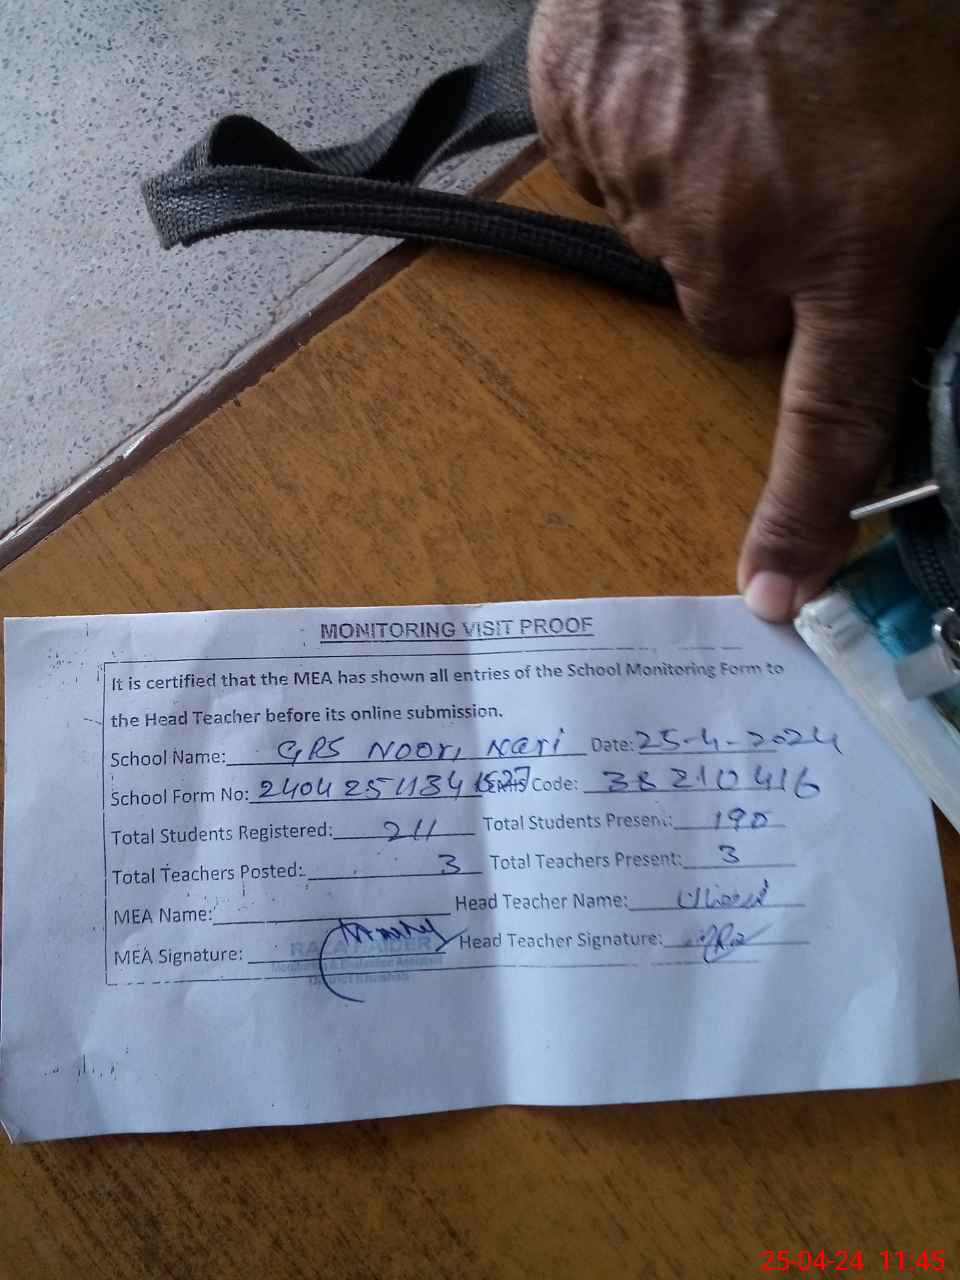 MONITORING VISIT PROOF
It is certified that the MEA has shown all entries of the School Monitoring Form to
the Head Teacher before its online submission.
School Name: GPS Noori, Nari Date: 25-4-2024
School Form No: 2404 25 Code: 38210416
Total Students Registered: 211 Total Students Present: 190
Total Teachers Posted: 3 Total Teachers Present: 3
MEA Name: Head Teacher Name:
MEA Signature: Head Teacher Signature:
25-04-24 11:45